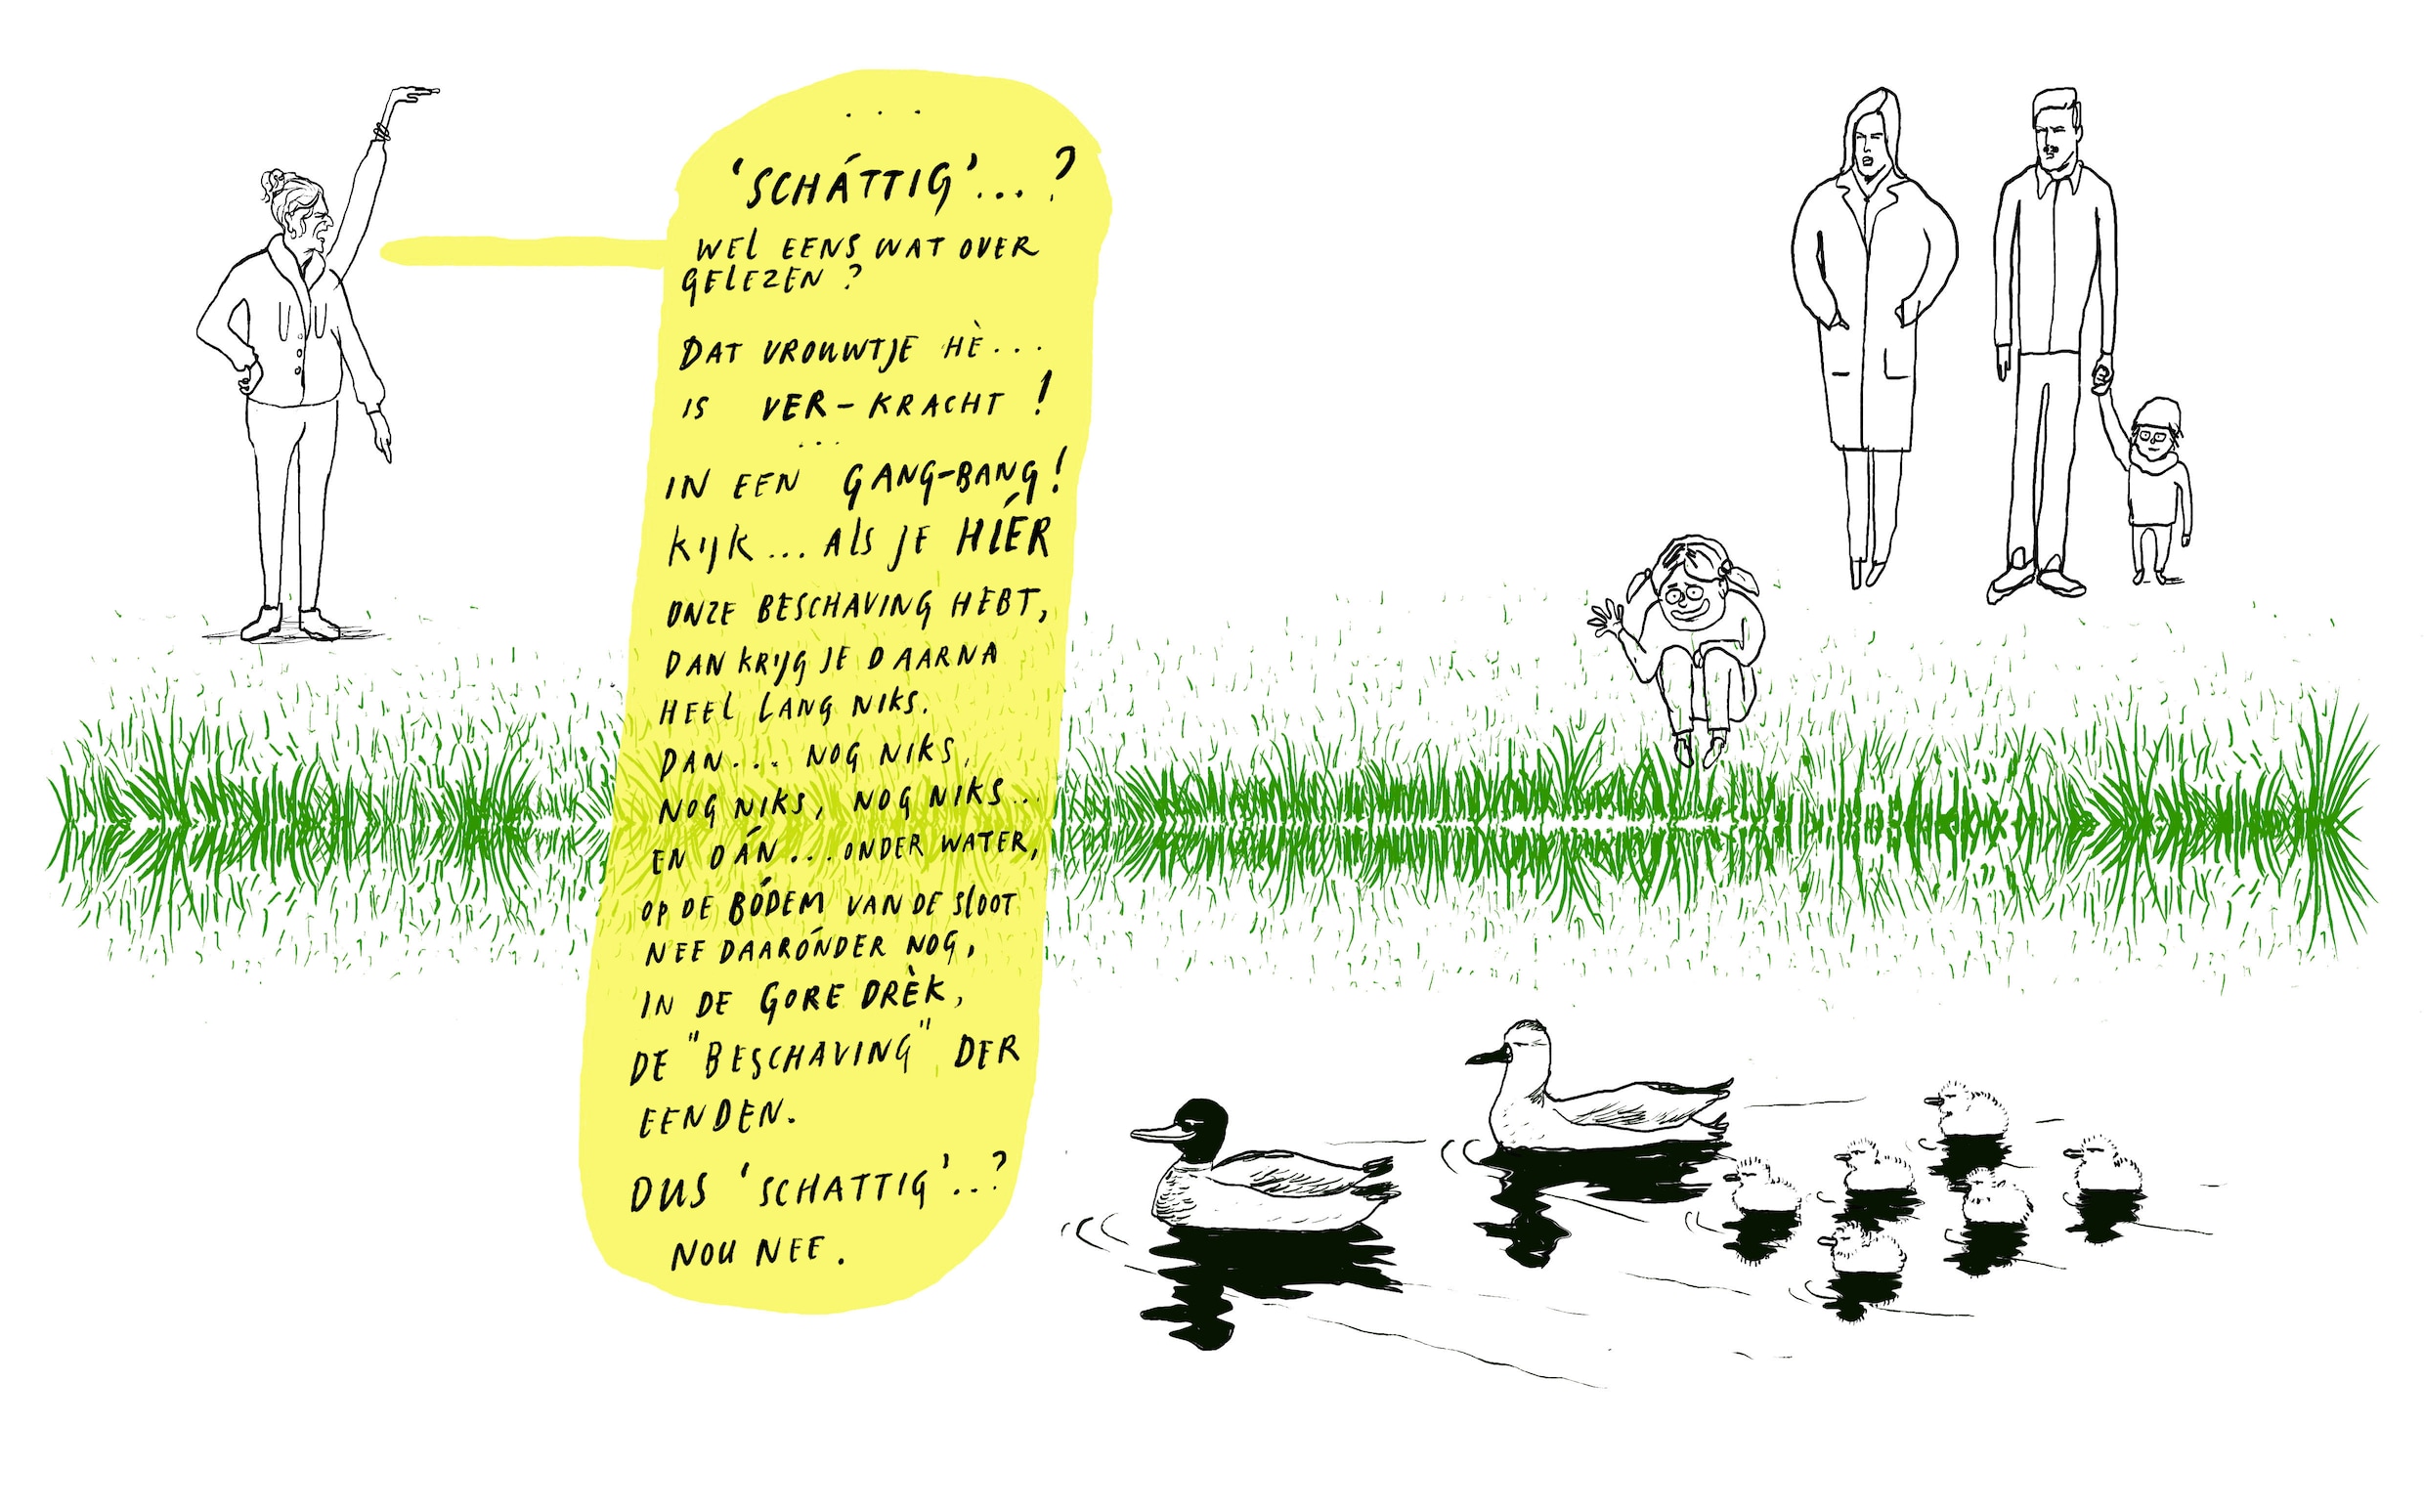 ...
'SCHÁTTIG'...?
WEL EENS WAT OVER
GELEZEN?
DAT VROUWTJE HÈ...
IS VER-KRACHT!
...
IN EEN GANG-BANG!
KIJK... ALS JE HÍÉR
ONZE BESCHAVING HEBT,
DAN KRIJG JE DAARNA
HEEL LANG NIKS.
DAN... NOG NIKS,
NOG NIKS, NOG NIKS...
EN DÁN... ONDER WATER,
OP DE BÓDEM VAN DE SLOOT
NEE DAARÓNDER NOG,
IN DE GORE DRÈK,
DE "BESCHAVING" DER
EENDEN.
DUS 'SCHATTIG'..?
NOU NEE.